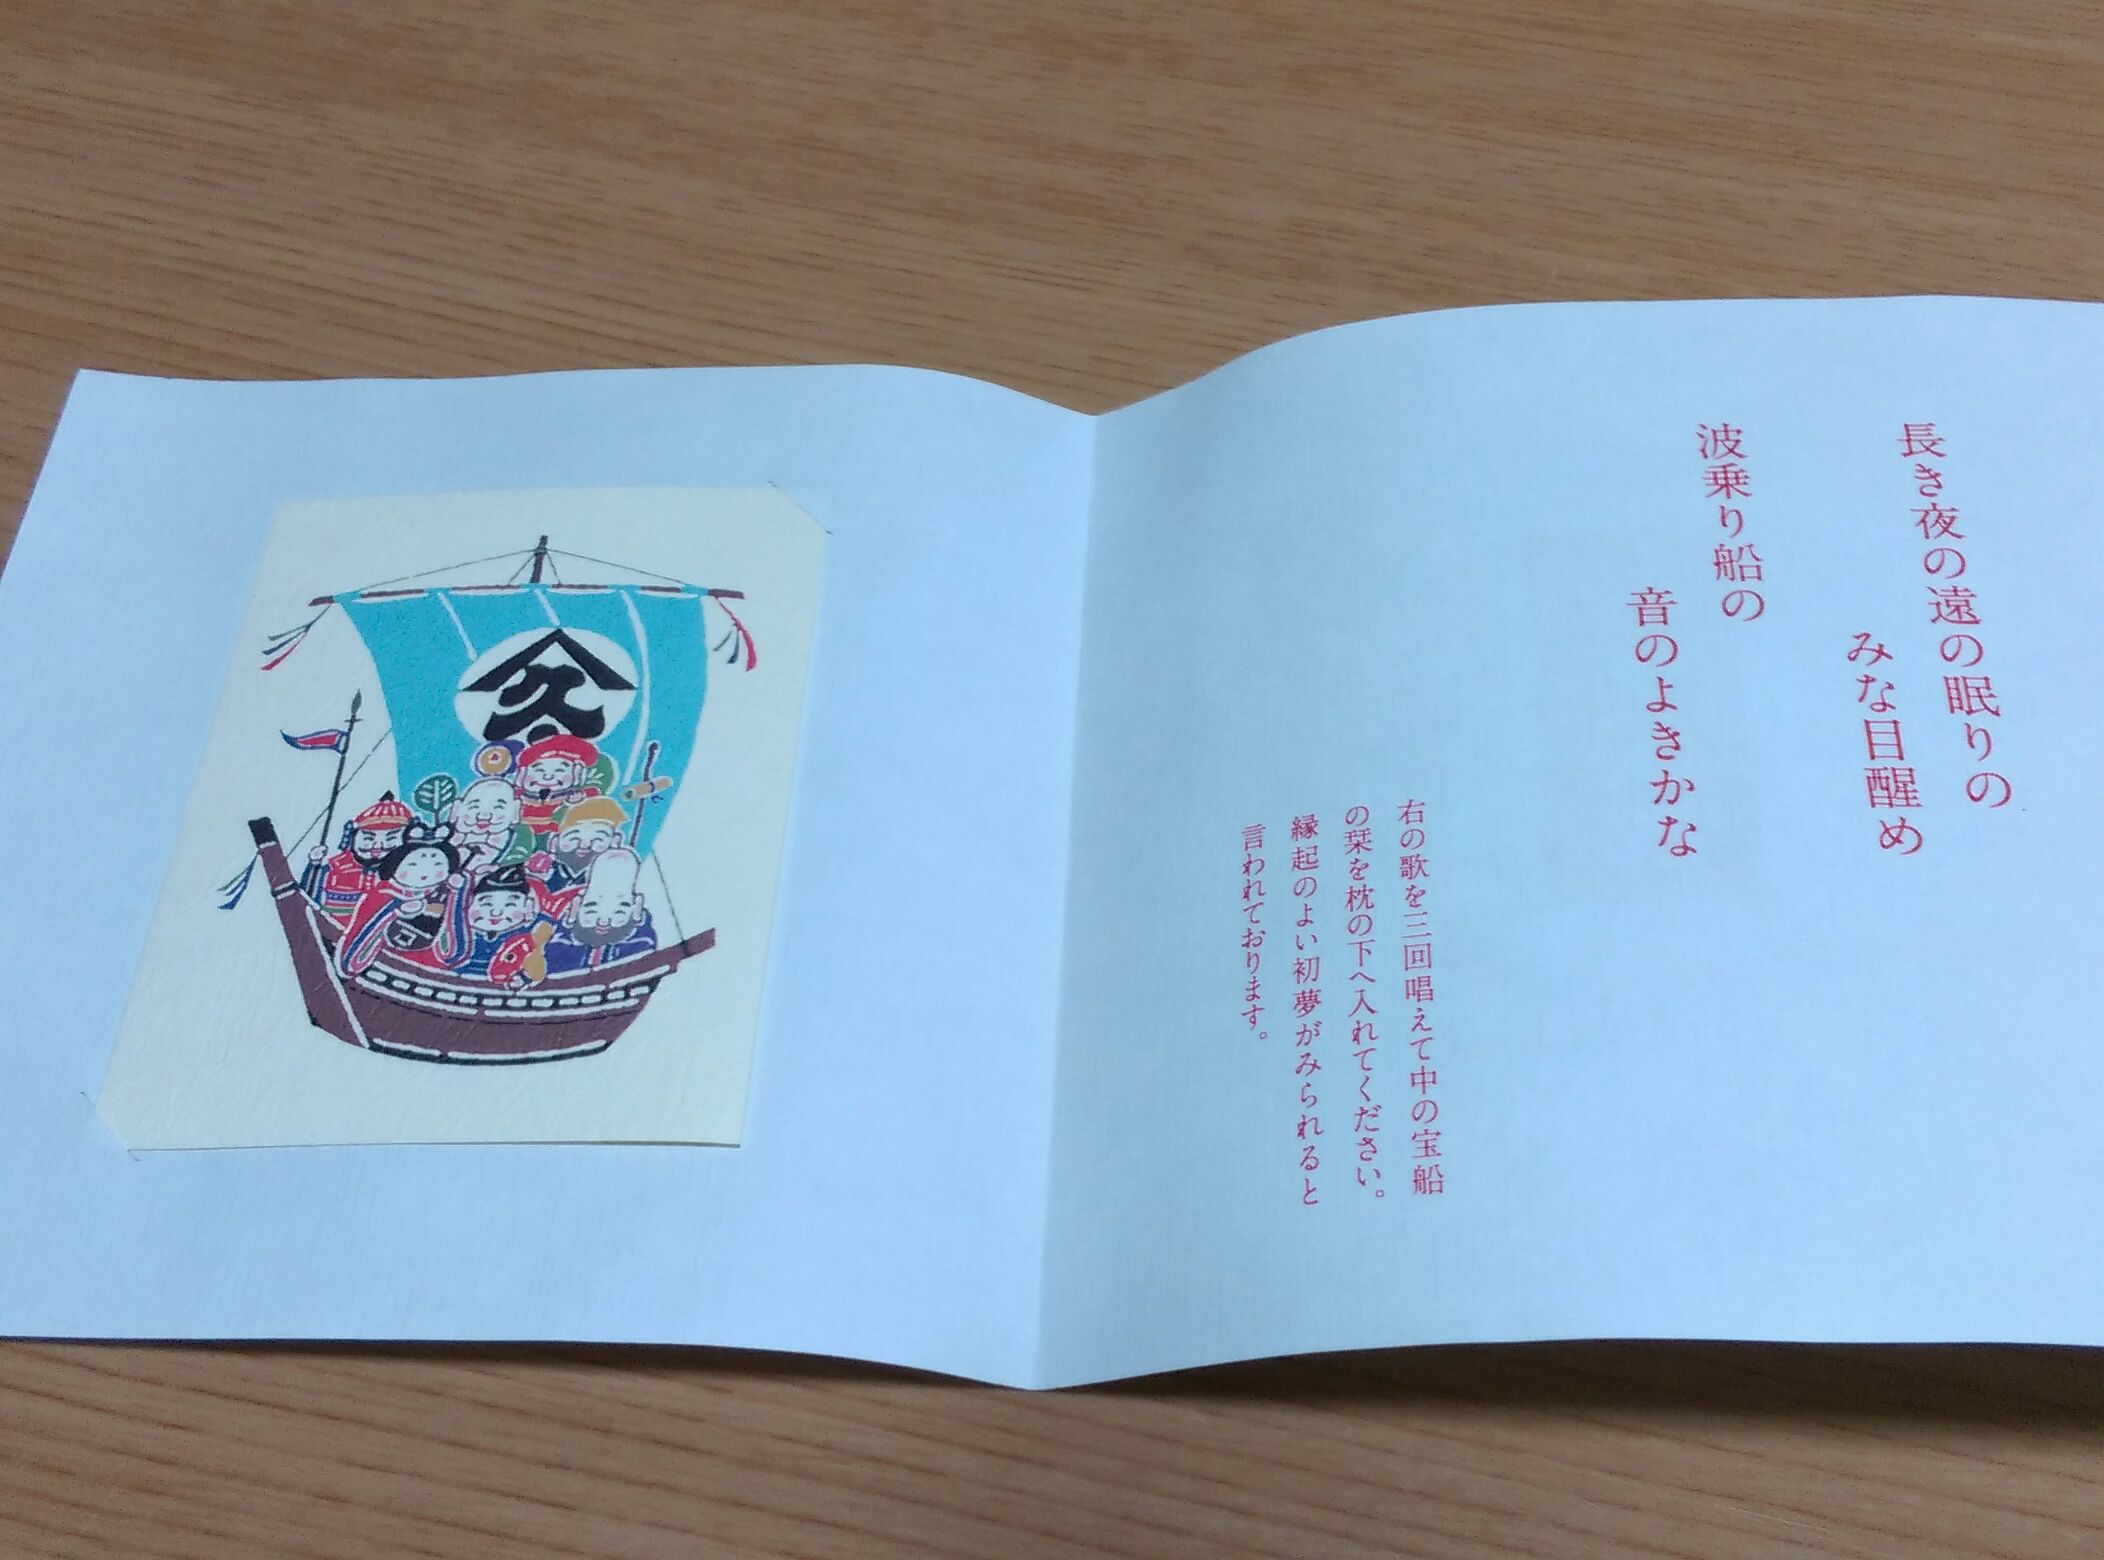 長き夜の遠の眠りの
みな目醒め
波乗り船の
音のよきかな
右の歌を三回唱えて中の宝船
の栞を枕の下へ入れてください。
縁起のよい初夢がみられると
言われております。
久